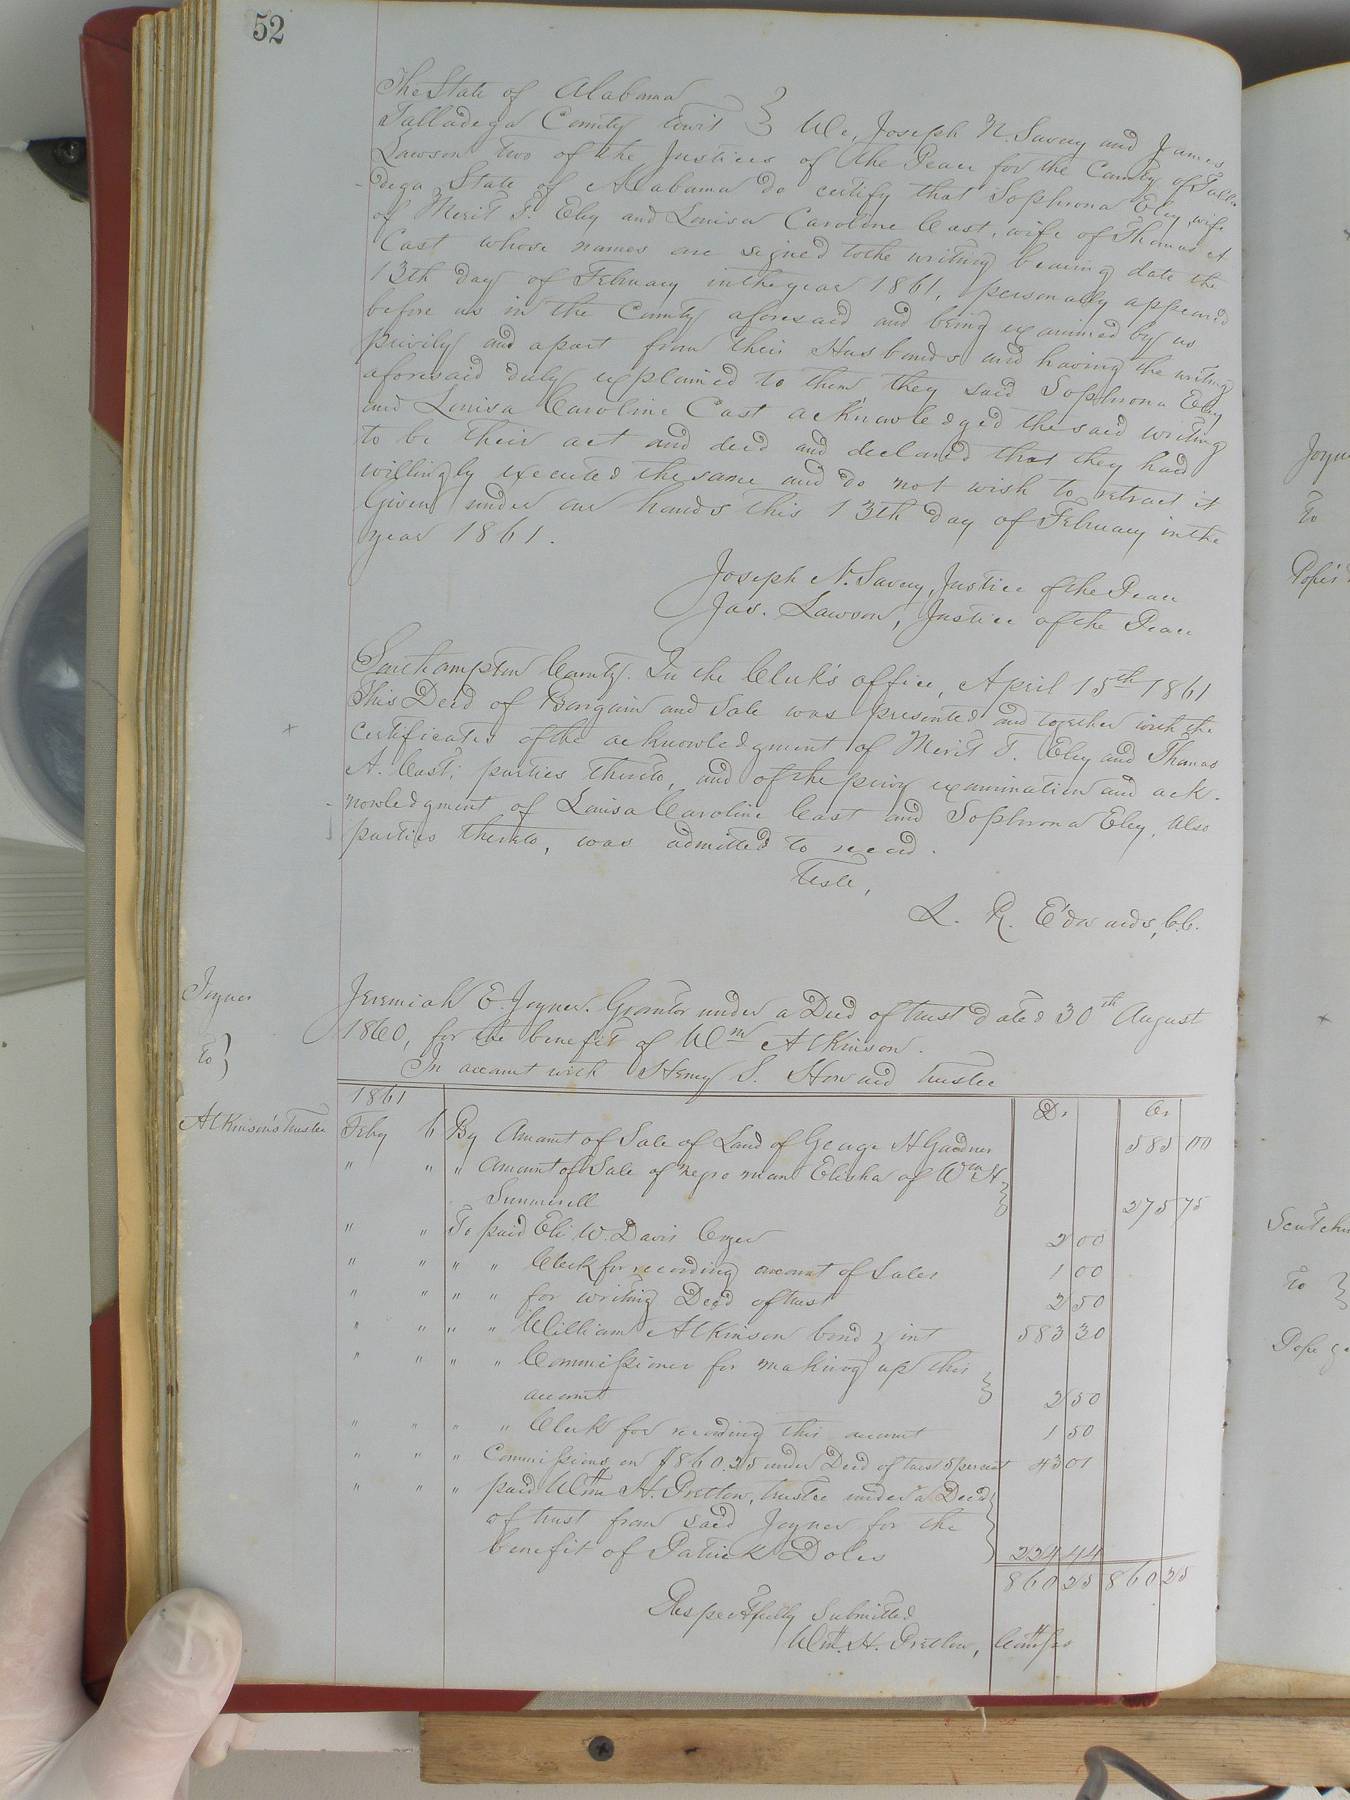 52
The State of Alabama
Talladega County towit } We, Joseph N. Savery and James
Lawson two of the Justices of the Peace for the County of Talla
dega State of Alabama do certify that Sophrona Eley, wife
of Merit T. Eley and Louisa Caroline Cast, wife of Thomas A
Cast whose names are signed to the writing bearing date the
13th day of February in the year 1861, personally appeared
before us in the County aforesaid and being examined by us
privily and apart from their Husbands and having the writing
aforesaid duly explained to them they said Sophrona Eley
and Louisa Caroline Cast acknowledged the said writing
to be their act and deed and declared that they had
willingly executed the same and do not wish to retract it
Given under our hands this 13th day of February in the
year 1861.
Joseph N. Savery, Justice of the Peace
Jas. Lawson, Justice of the Peace
Southampton County. In the Clerk's office, April 15th 1861
This Deed of Bargain and Sale was presented and together with the
certificates of the acknowledgment of Merit T. Eley and Thomas
A. Cast, parties thereto, and of the privy examination and ack-
nowledgment of Louisa Caroline Cast and Sophrona Eley, also
parties thereto, was admitted to record.
Teste,
L. R. Edwards, C.C.
Joyner
to }
Atkinson's Trustee
Jeremiah E. Joyner. Grantor under a Deed of trust dated 30th August
1860, for the benefit of Wm Atkinson.
In account with Henry S. Howard trustee
1861 Dr. Cr.
Feby 6 By Amount of Sale of Land of George H Gardner 585 00
" " " Amount of Sale of negro man Elisha of Wm H.
Summerell } 275 75
" " To paid Eli W. Davis Cryer 2 00
" " " " Clerk for recording account of Sales 1 00
" " " " for writing Deed of trust 2 50
" " " " William Atkinson bond & int 583 30
" " " " Commissioner for making up this
account } 2 50
" " " " Clerk for recording this account 1 50
" " " Commissions on $860.25 under Deed of trust 5 percent 43 01
" " " paid Wm H. Pretlow, trustee under a Deed
of trust from said Joyner for the
benefit of Patrick Doles } 224 44
860 25 860 25
Respectfully Submitted
Wm. H. Pretlow, Commr
Joyn
to
Pope's
to }
Pope